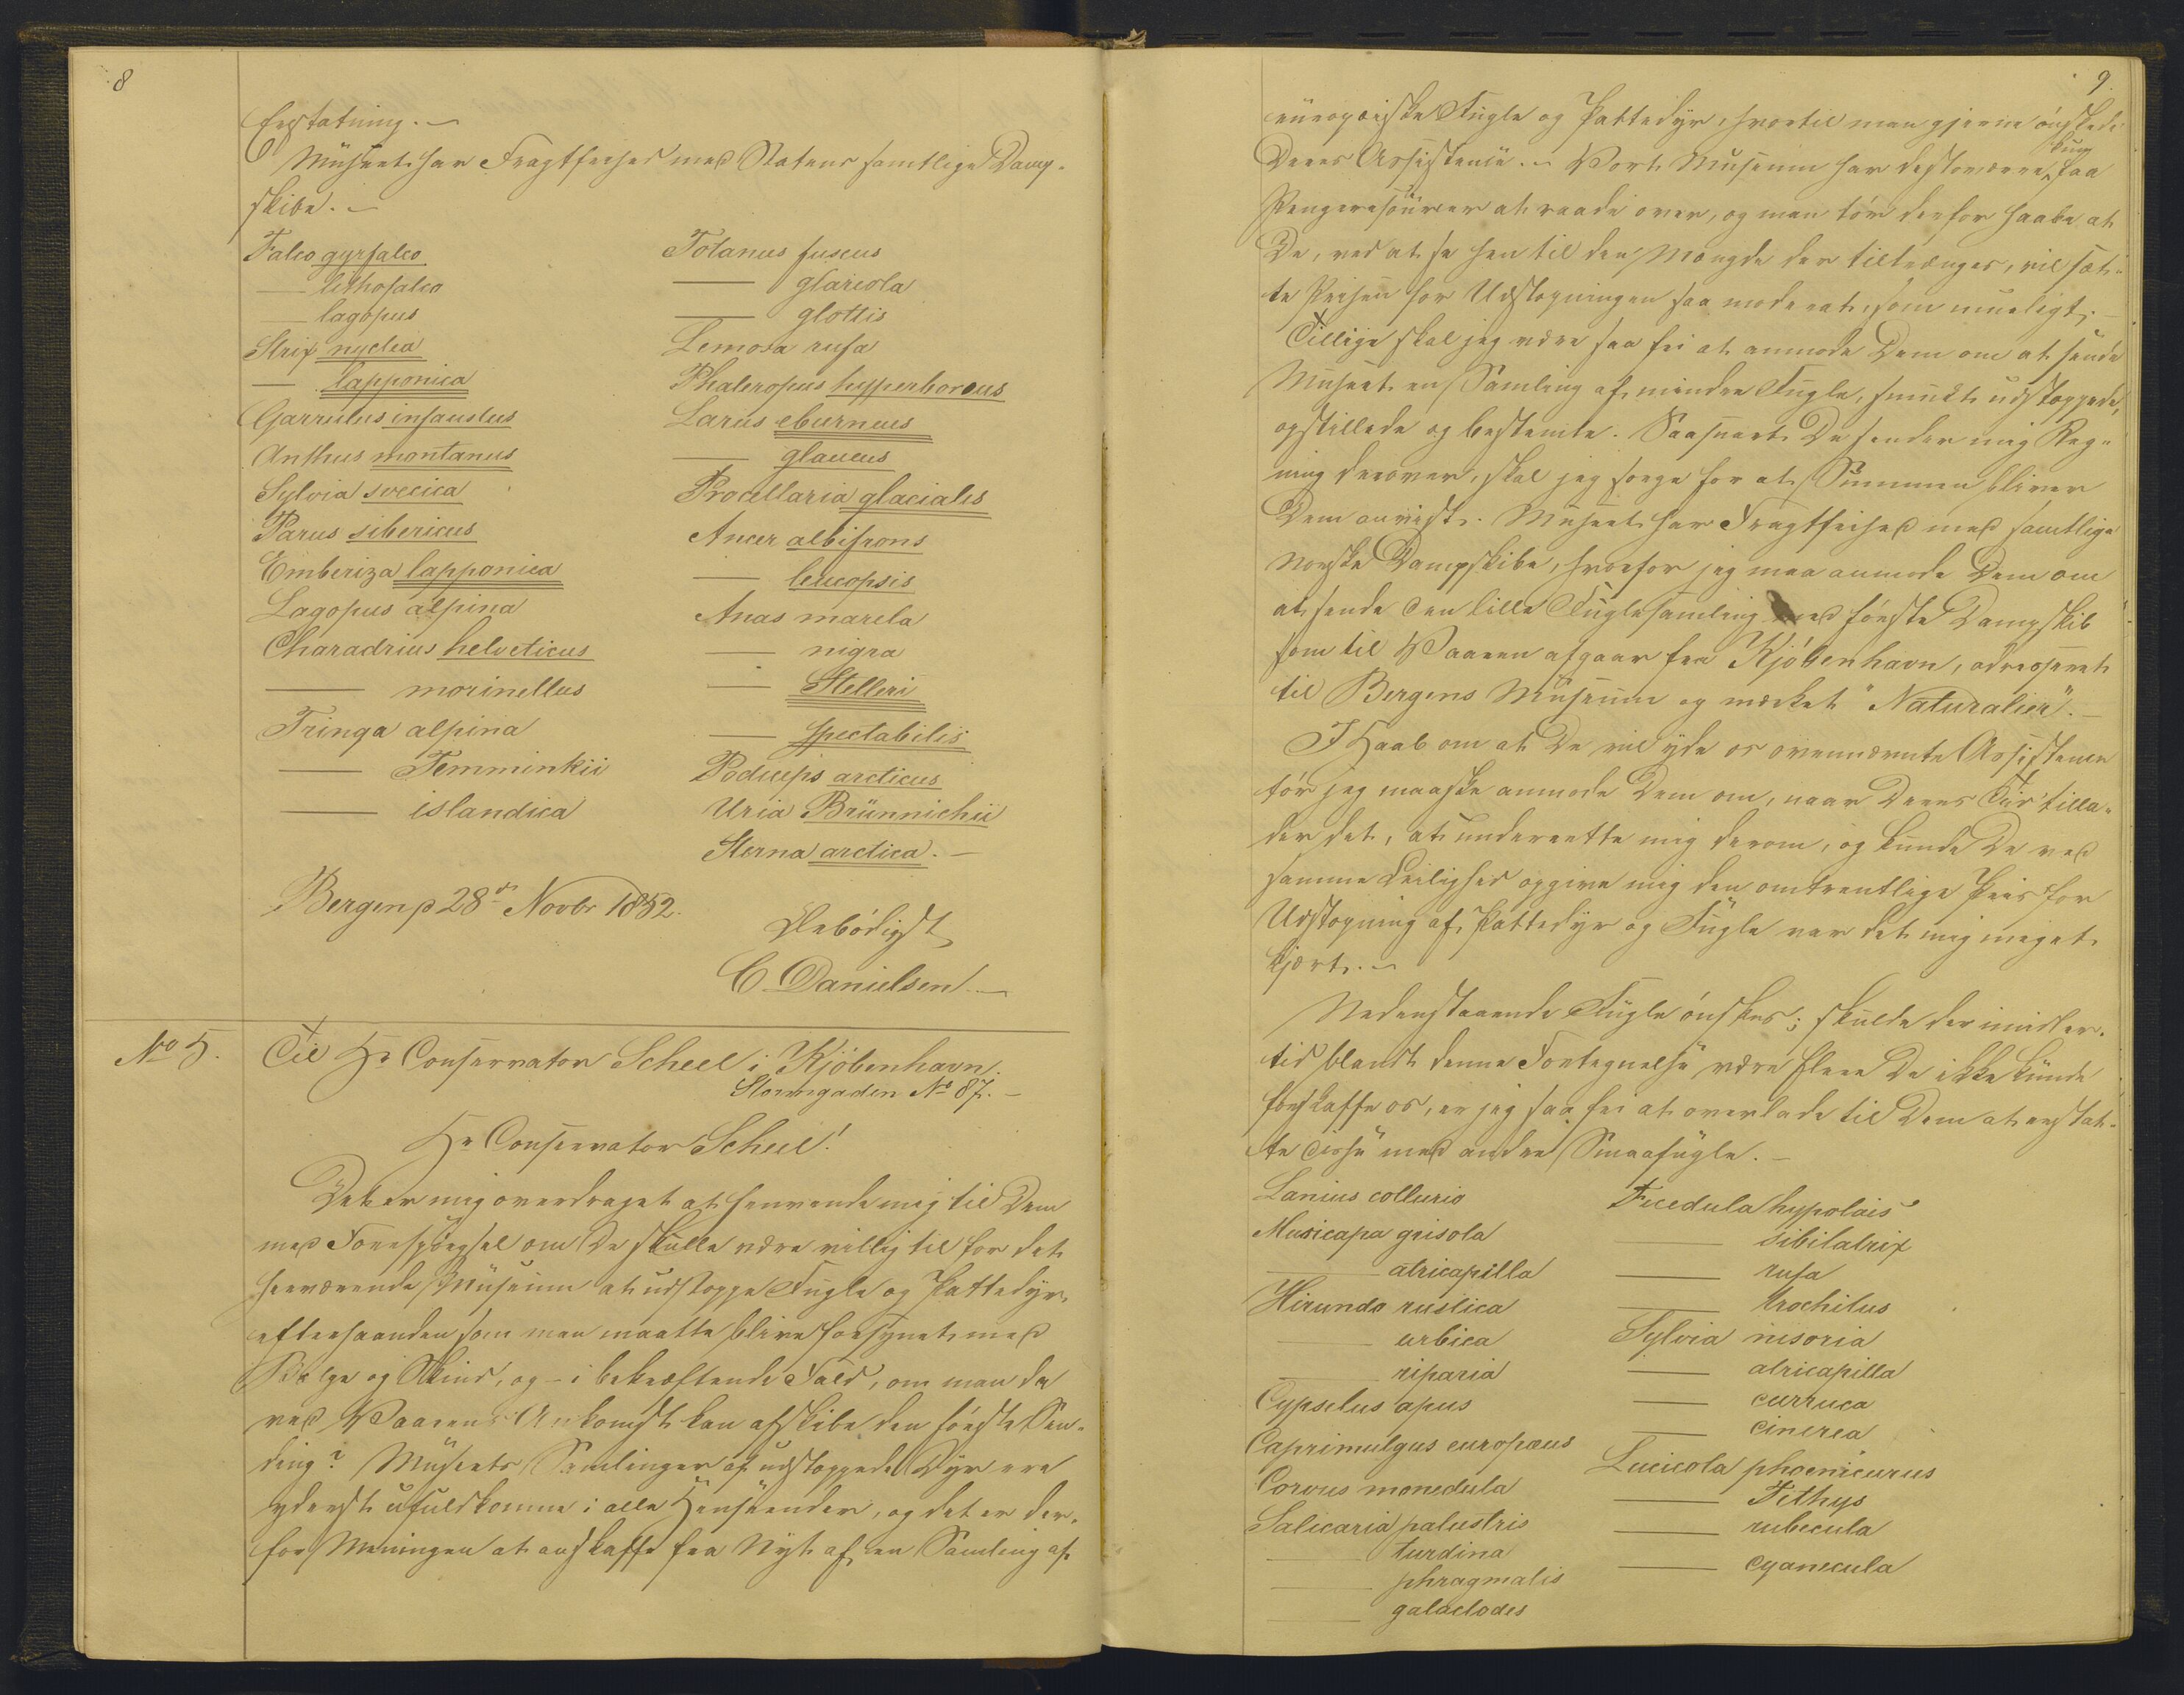 8
Erstatning. —
Muséet har Fragtfrihed med Statens samtlige Damp-
skibe. —
Falco gyrfalco
— lithofalco
— lagopus
Strix nyclea
— lapponica
Garrulus infaustus
Anthus montanus
Sylvia svecica
Parus sibericus
Emberiza lapponica
Lagopus alpina
Charadrius helveticus
— morinellus
Tringa alpina
— Temminkii
— islandica
Totanus fuscus
— glariola
— glottis
Lemosa rufa
Phaleropus hyperboreus
Larus eburneus
— glaucus
Procellaria glacialis
Ancer albifrons
— leucopsis
Anas marela
— nigra
— Stelleri
— spectabilis
Podiceps arcticus
Uria Brünnichii
Sterna arctica. —
Bergen p 28de Novbr 1852.
Ærbødigst
C Danielsen. —
No 5.
Til Hr Conservator Scheel i Kjöbenhavn.
No 87. —
Hr Conservator Scheel!
Det er mig overdraget at henvende mig til Dem
med Forespørgsel om De skulle være villig til for det
herværende Museum at udstoppe Fugle og Pattedyr,
efterhaanden som man maatte blive forsynet med
Bælge og Skind, og – i bekræftende Fald, om man da
ved Vaarens Ankomst kan afskibe den første Sen-
ding? Muséets Samlinger af udstoppede Dyr ere
yderst ufuldkomne i alle Henseender, og det er der-
for Meningen at anskaffe fra Nyt af en Samling af
9.
europæiske Fugle og Pattedyr, hvortil man gjerne ønskede
Deres Assistence. – Vort Museum har desværre kun faa
Pengeresourcer at raade over, og man tør derfor haabe at
De, ved at se hen til den Mængde der tiltrænges, vil sæt-
te Prisen for Udstopningen saa moderat, som mueligt. –
Tillige skal jeg være saa fri at anmode Dem om at sende
Muséet en Samling af mindre Fugle, smukt udstoppede,
opstillede og bestemte. Saasnart De sender mig Reg-
ning derover, skal jeg sørge for at Summen bliver
Dem anvist. Muséet har Fragtfrihed med samtlige
norske Dampskibe, hvorfor jeg maa anmode Dem om
at sende den lille Fuglesamling med første Dampskib
som til Vaaren afgaar fra Kjöbenhavn, adresseret
til Bergens Museum og mærket "Naturalier". –
I Haab om at De vil yde os ovennævnte Assistence
tør jeg maaske anmode Dem om, naar Deres Tid tilla-
der det, at underrette mig derom, og kunde De ved
samme Leilighed opgive mig den omtrentlige Pris for
Udstopning af Pattedyr og Fugle var det mig meget
kjært. –
Nedenstaaende Fugle ønskes; skulde der imidler-
tid blandt denne Fortegnelse være flere De ikke kunde
forskaffe os, er jeg saa fri at overlade til Dem at erstat-
te disse med andre Smaafugle. –
Lanius collurio
Musicapa grisola
— atricapilla
Hirundo rustica
— urbica
— riparia
Cypselus apus
Caprimulgus europæus
Corvus monedula
Salicaria palustris
— turdina
— phragmalis
— galactodes
Ficedula hypolais
— sibilatrix
— rufa
— trochilus
Sylvia nisoria
— atricapilla
— curruca
— cinerea
Lucicola phoenicurus
— Tithys
— rubecula
— cyanecula